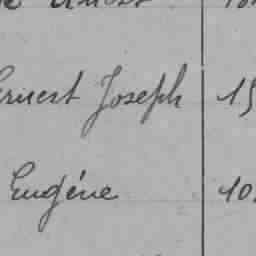 Ernest Joseph 15
Eugène 10